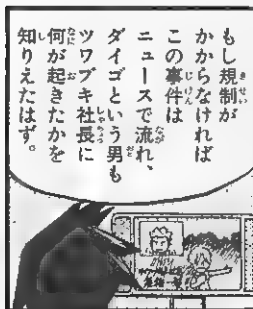 もし規制が
かからなければ
この事件は
ニュースで流れ、
ダイゴという男も
ツワブキ社長に
何が起きたかを
知りえたはず。